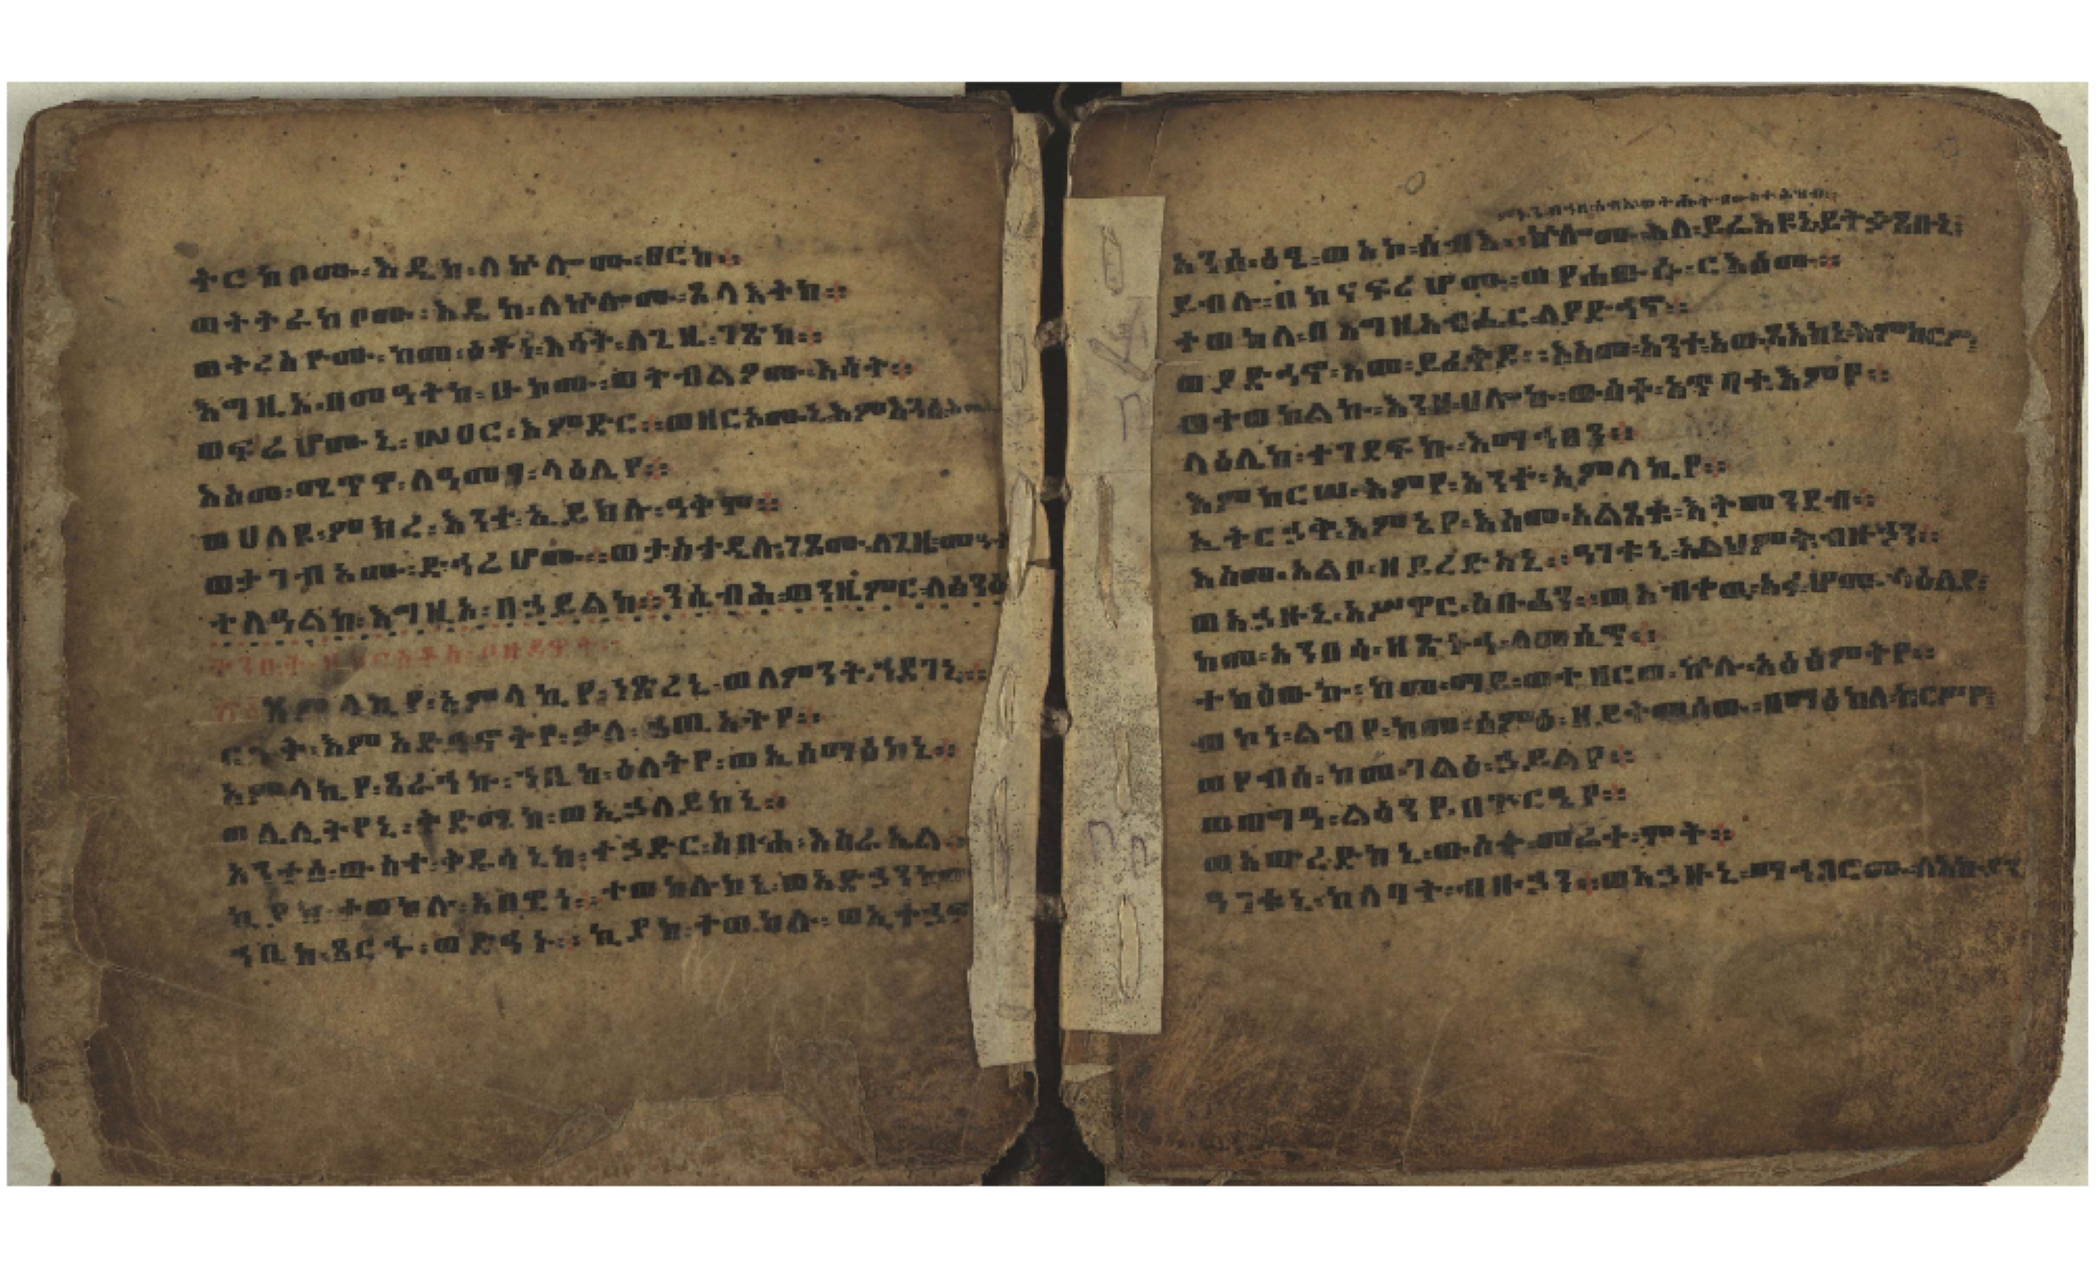 ትርከቦሙ፡እዴከ፡ለኵሎሙ፡ፀርከ።
ወትትራከቦሙ፡እዴከ፡ለኵሎሙ፡ጸላእትከ።
ወትሬስዮሙ፡ከመ፡ዕቶነ፡እሳት፡ለጊዜ፡ገጽከ።
እግዚኦ፡በመዓትከ፡ሁከሙ፡ወትብልዖሙ፡እሳት።
ወፍሬሆሙኒ፡ሠዐር፡እምድር።ወዘርኦሙኒ፡
እስመ፡ሚጥዋ፡ለዓመፃ፡ላዕሌየ።
ወሀለዩ፡ምክረ፡እንተ፡ኢይክሉ፡ዓቅም።
ወታገብኦሙ፡ድኅሬሆሙ።ወታስታዴሉ፡ገጾሙ፡ለጊዜ፡
ተለዓልከ፡እግዚኦ፡በኃይልከ።ንሴብሕ፡ወንዜምር፡
አምላኪየ፡አምላኪየ፡ነጽረኒ፡ወለምንት፡ኀደገኒ።
ርኁት፡እምአድኅኖትየ፡ቃለ፡ኃጢአትየ።
አምላኪየ፡ጸራኅኩ፡ኀቤከ፡ዕለትየ፡ወኢሰማዕከኒ።
ወሌሊትየኒ፡ቅድሜከ፡ወኢኃለይከኒ።
አንተሰ፡ውስተ፡ቅዱሳኒከ፡ተኃድር፡ስቡሐ፡እስራኤል።
ኪያከ፡ተወከሉ፡አበዊነ።ተወከሉከኒ፡
ኀቤከ፡ጸርኁ፡ወድኅኑ።ኪያከ፡ተወከሉ፡
አንሰ፡ዕፄ፡ወአኮ፡ሰብእ።ኵሎሙ፡እለ፡ይሬእዩኒ፡ይትቃጸቡኒ፤
ይብሉ፡በከናፍሪሆሙ፡ወየሐውሱ፡ርእሰሙ።
ተወከለ፡በእግዚአብሔር፡ለያድኅኖ።
ወያድኅኖ፡እመ፡ይፈቅዶ።እስመ፡አንተ፡አውጻእከኒ፡እምከርሥ፤
ወተወከልኩ፡እንዘ፡ሀሎኩ፡ውስተ፡አጥባተ፡እምየ።
ላዕሌከ፡ተገደፍኩ፡እማኅፀን።
እምከርሠ፡እምየ፡አንተ፡አምላኪየ።
ኢትርኃቅ፡እምኔየ፡እስመ፡አልጸቁ፡እትመንደብ።
እስመ፡አልቦ፡ዘይረድአኒ።ዓገቱኒ፡አልህምት፡ብዙኃን።
ወአኃዙኒ፡አሥዋር፡ስቡሐን።ወአብቀዉ፡አፉሆሙ፡ላዕሌየ፤
ከመ፡አንበሳ፡ዘጽኑዓ፡ለመሲጥ።
ተከዕውኩ፡ከመ፡ማይ፡ወተዘርወ፡ኵሉ፡አዕፅምትየ።
ወኮነ፡ልብየ፡ከመ፡ሰምዕ፡ዘይትመሰው፡በማዕከለ፡ከርሥየ፤
ወየብሰ፡ከመ፡ገልዕ፡ኃይልየ።
ወጠግዓ፡ልሳንየ፡በጕርዔየ።
ወአውረድከኒ፡ውስተ፡መሬተ፡ሞት።
ዓገቱኒ፡ከለባት፡ብዙኃን።ወአኃዙኒ፡